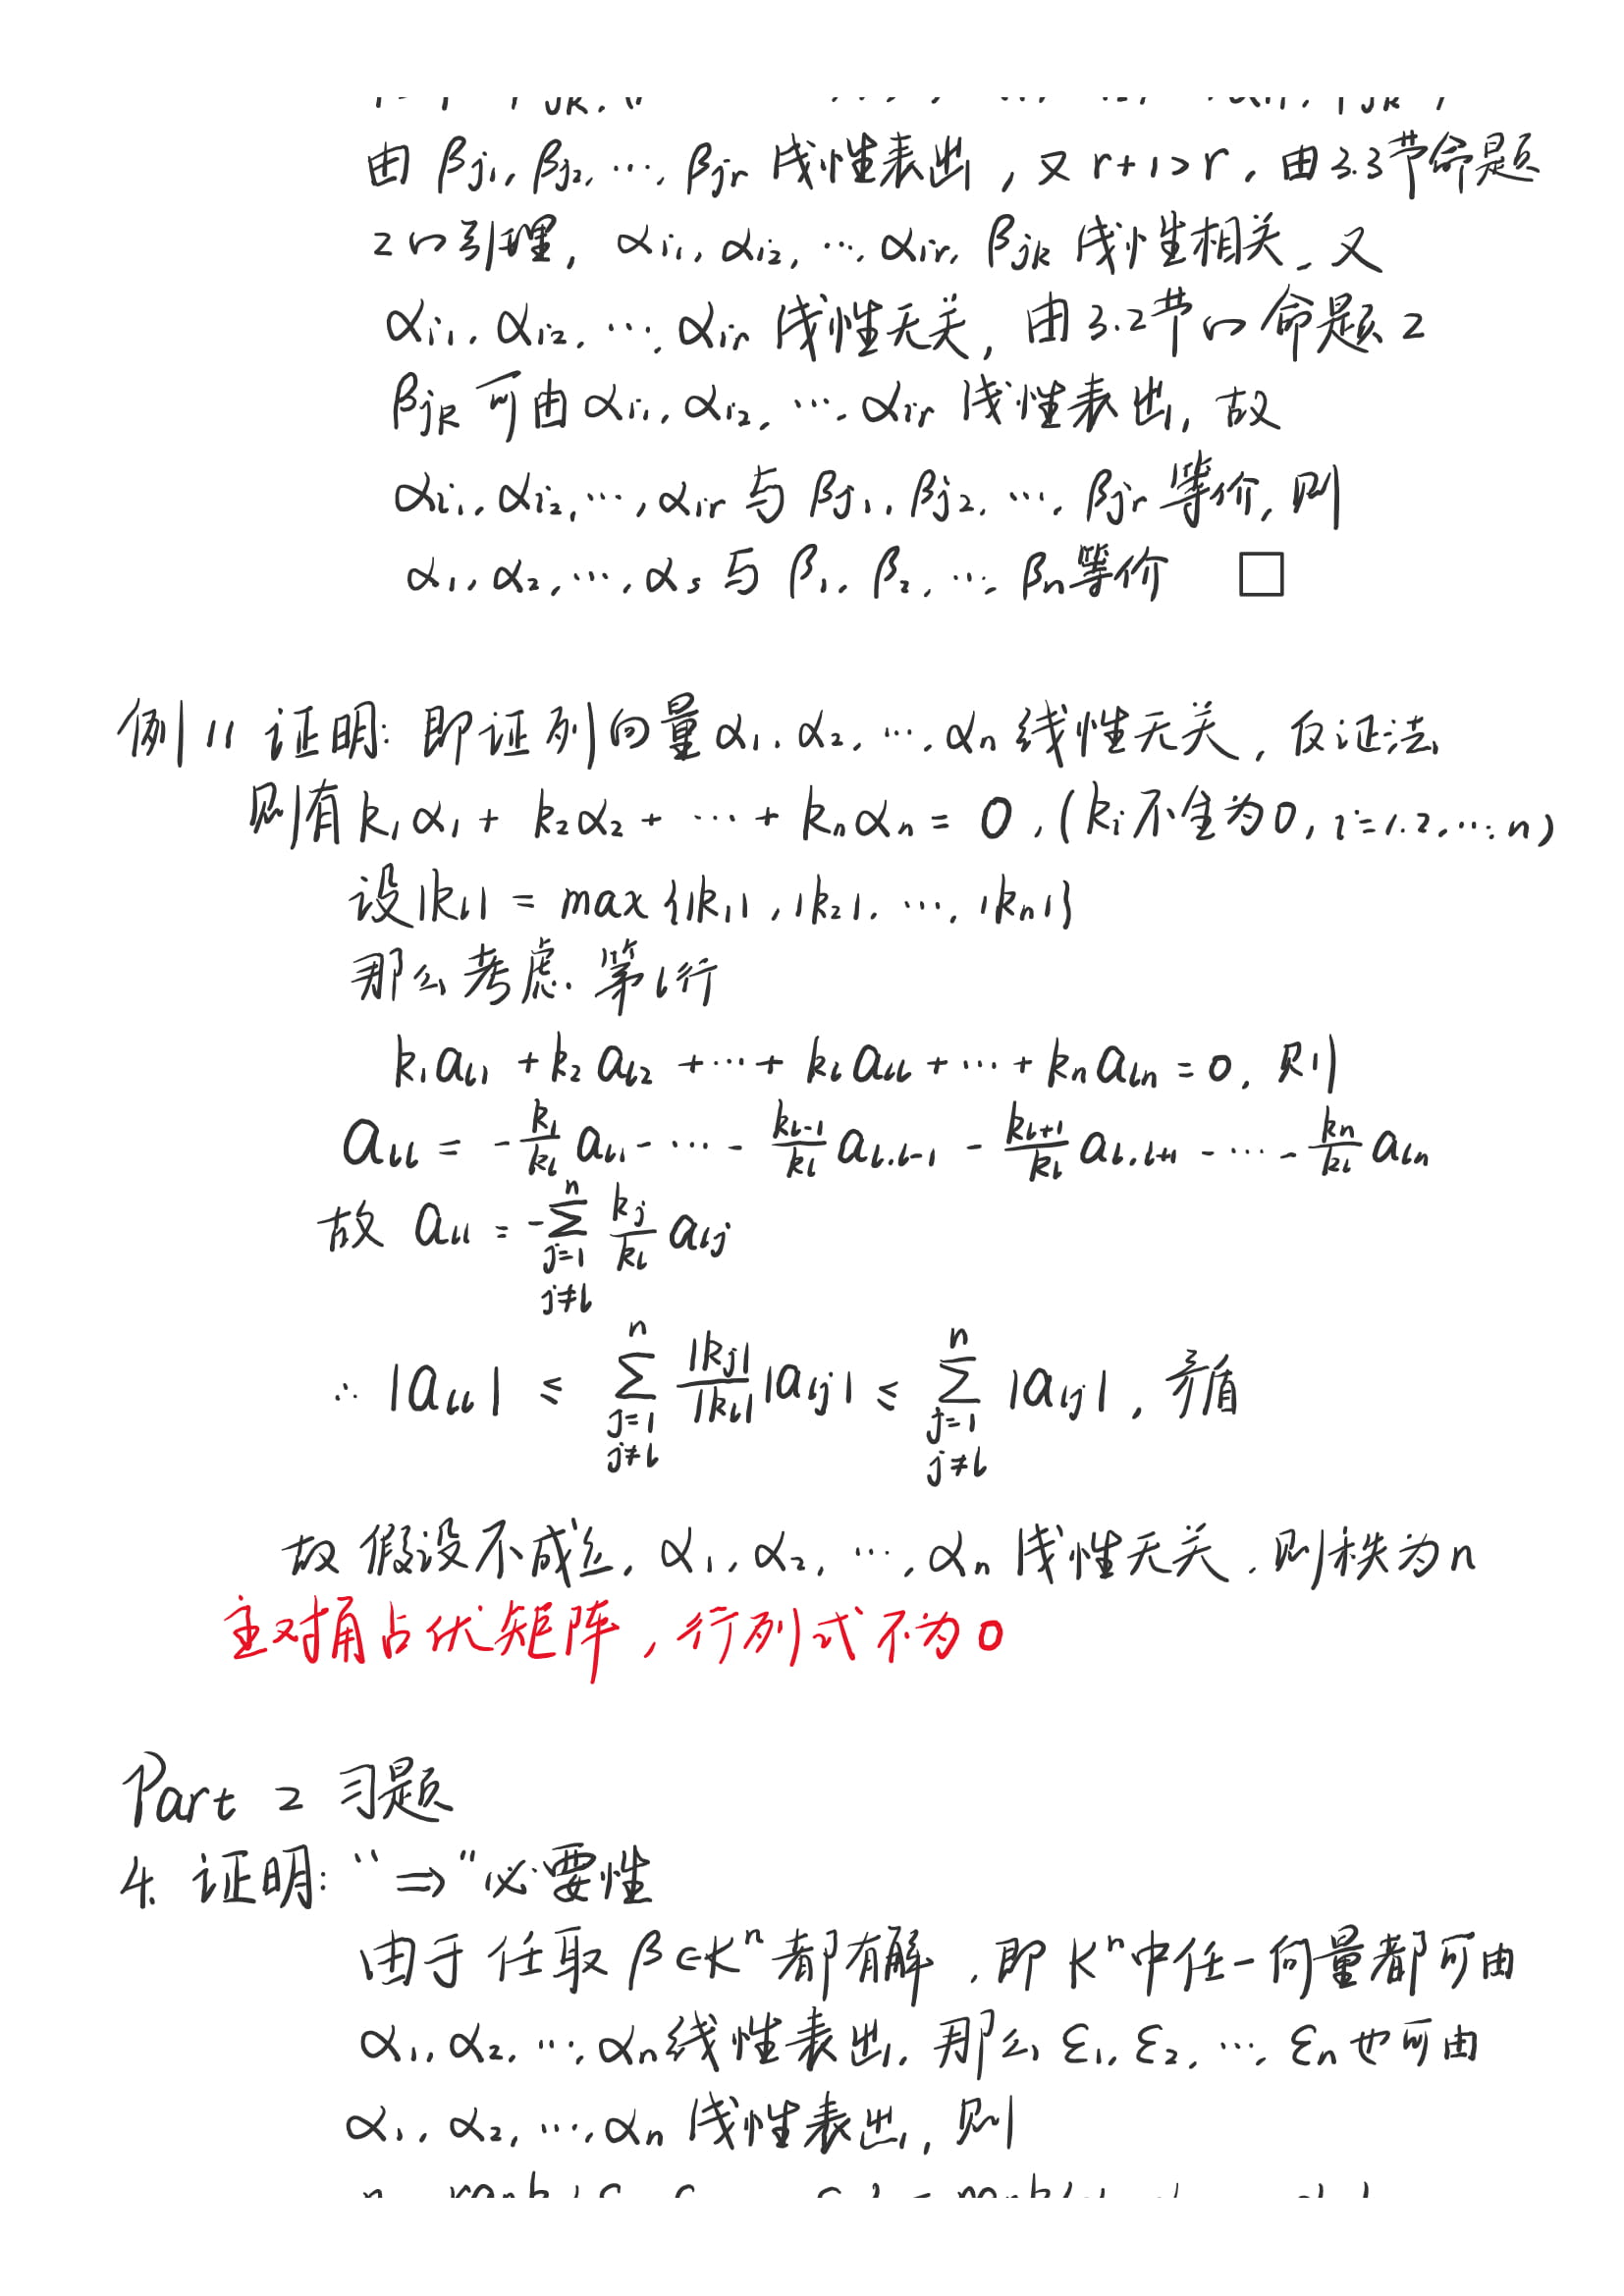 由 βj1, βj2, …, βjr 线性表出, 又 r+1>r, 由3.3节命题
2的引理, αi1, αi2, …, αir, βjk 线性相关, 又
αi1, αi2, …, αir 线性无关, 由3.2节的命题2
βjk 可由 αi1, αi2, …, αir 线性表出, 故
αi1, αi2, …, αir 与 βj1, βj2, …, βjr 等价, 则
α1, α2, …, αs 与 β1, β2, …, βn 等价 □
例11 证明: 即证列向量 α1, α2, …, αn 线性无关, 反证法,
则有 k1α1 + k2α2 + … + knαn = 0, (ki不全为0, i=1.2.….n)
设|kl| = max{|k1|, |k2|, …, |kn|}
那么考虑 第l行
k1al1 + k2al2 + … + klall + … + knaln = 0, 则
all = -k1/kl al1 - … - kl-1/kl al.l-1 - kl+1/kl al.l+1 - … - kn/kl aln
故 all = -∑(j=1, j≠l)^n kj/kl alj
∴ |all| ≤ ∑(j=1, j≠l)^n |kj|/|kl| |alj| ≤ ∑(j=1, j≠l)^n |alj|, 矛盾
故 假设不成立, α1, α2, …, αn 线性无关. 则秩为n
主对角占优矩阵, 行列式不为0
Part 2 习题
4. 证明: "⇒"必要性
由于 任取 β∈Kⁿ 都有解, 即 Kⁿ中任一向量都可由
α1, α2, …, αn 线性表出, 那么 ε1, ε2, …, εn 也可由
α1, α2, …, αn 线性表出, 则